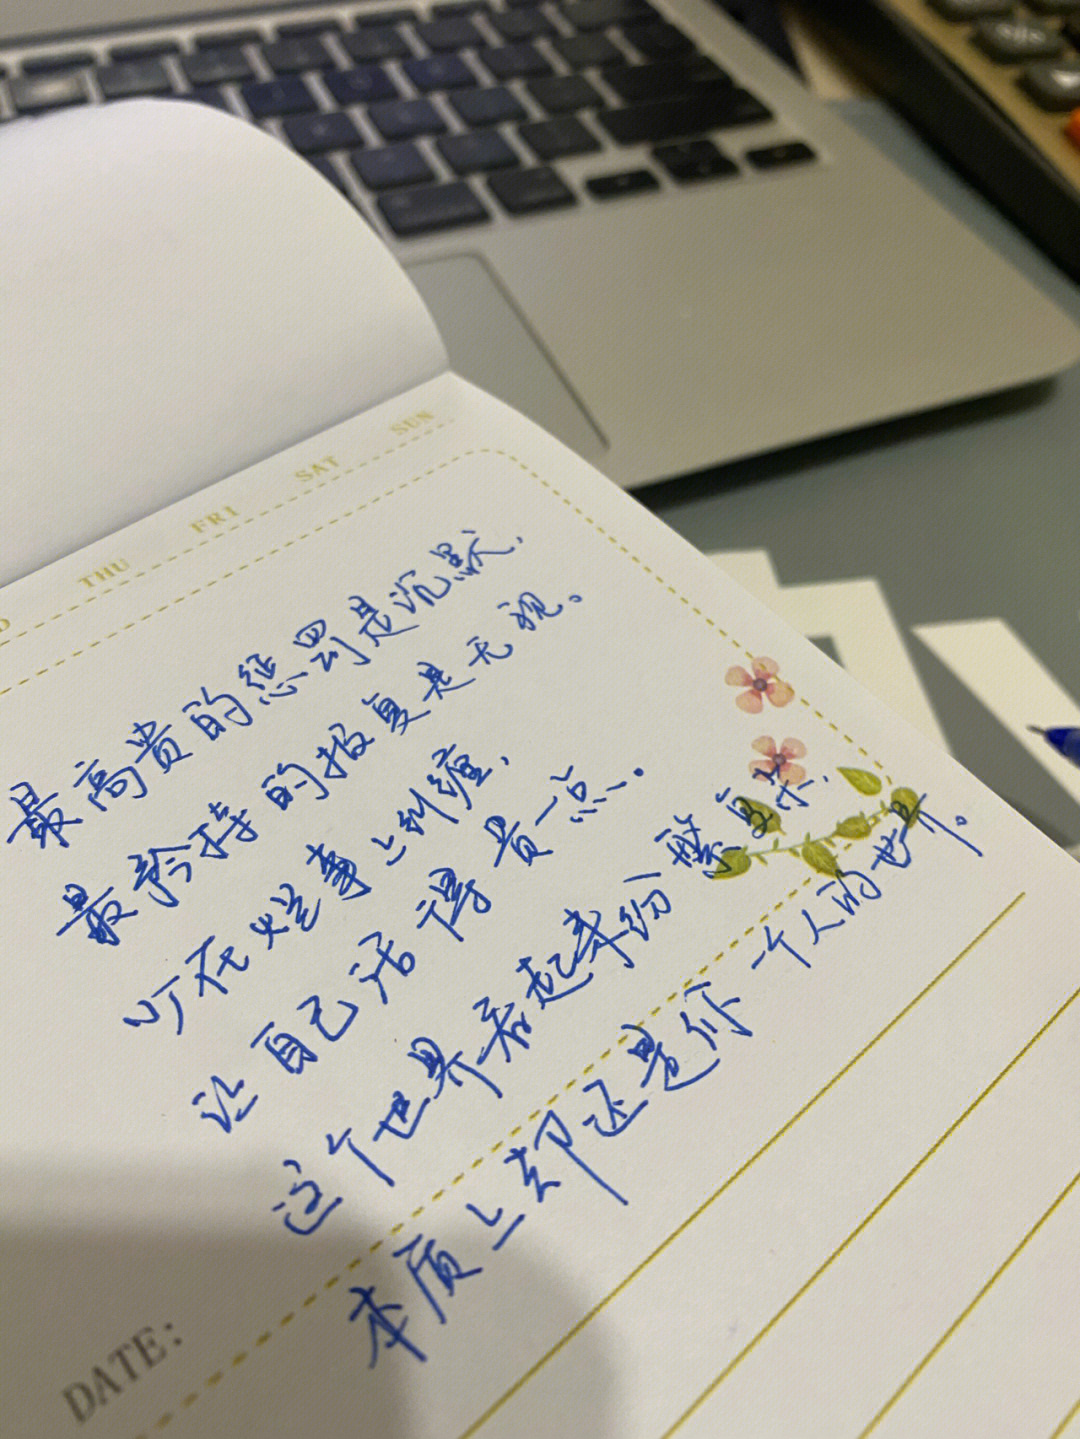 THU FRI SAT SUN
最高贵的惩罚是沉默,
最矜持的报复是无视。
在烂事上纠缠,
让自己活得贵一点.
这个世界看起来纷繁复杂,
本质上却还是你一个人的世界。
DATE: